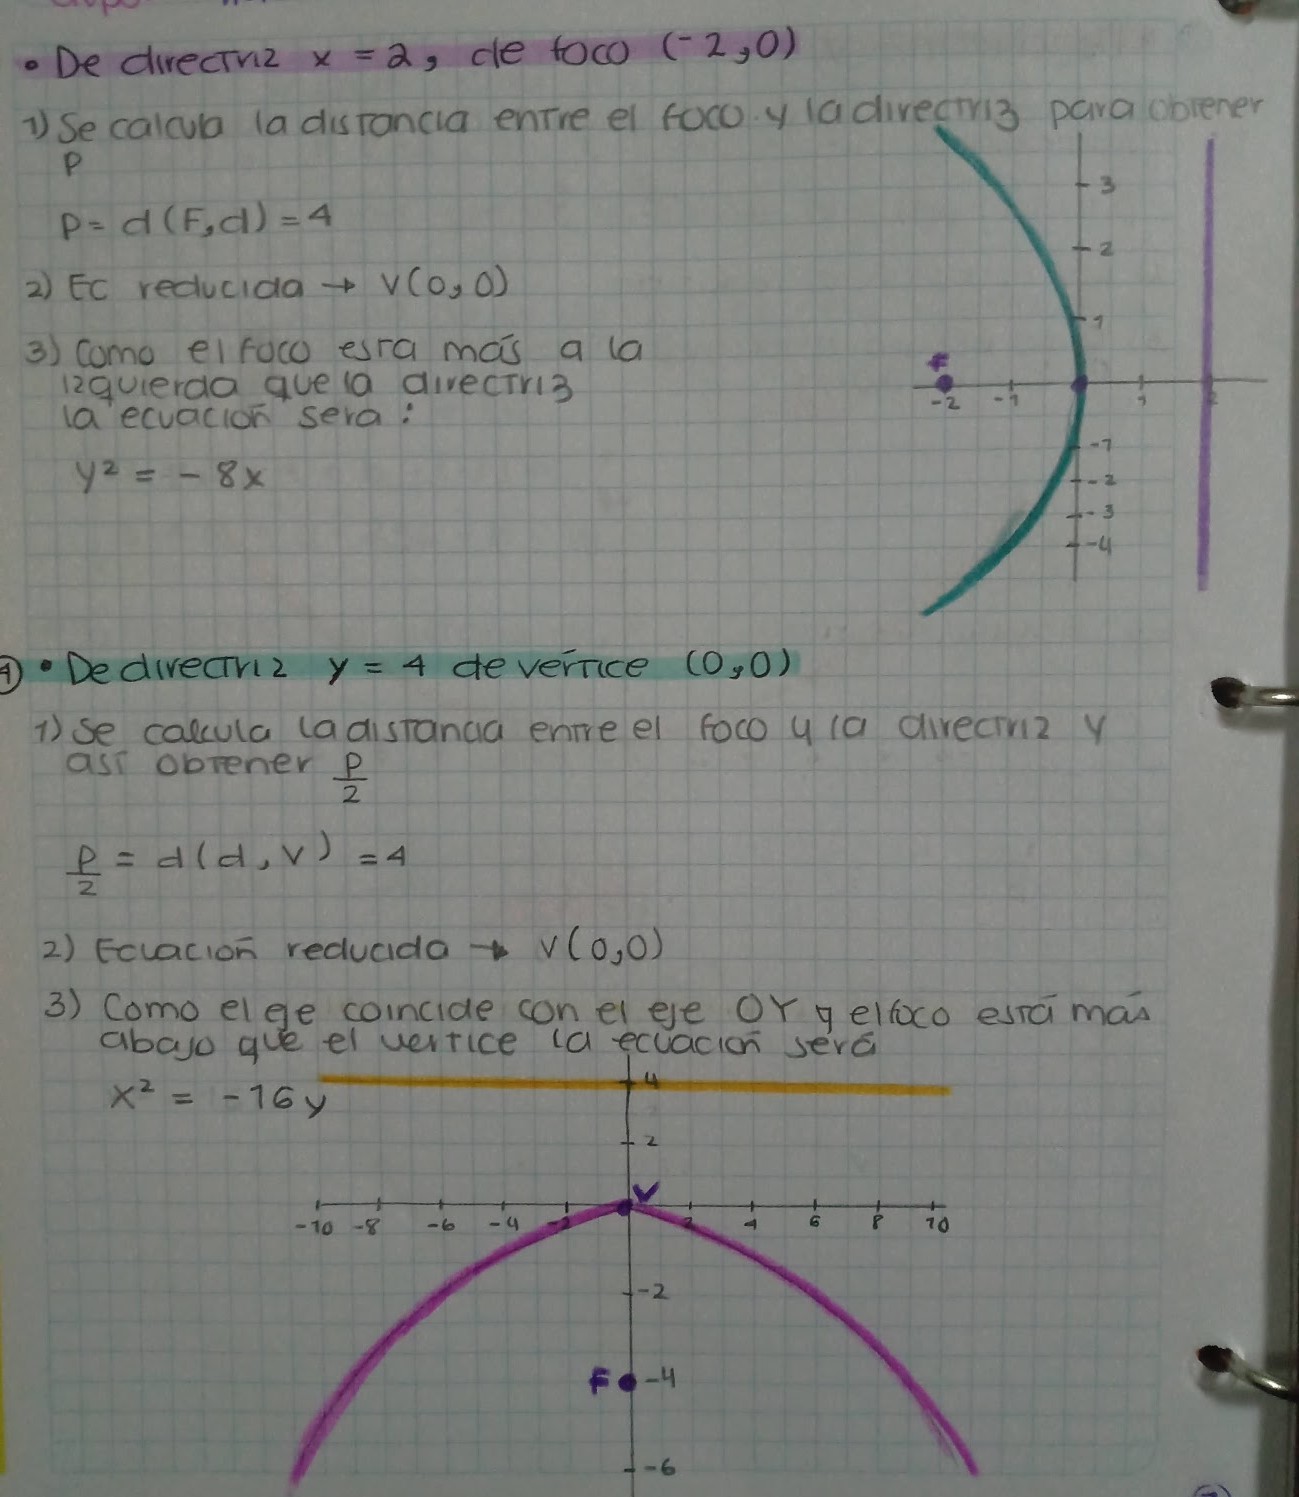 • De directriz x = 2, de foco (-2,0)
1) Se calcula la distancia entre el foco y la directriz para obtener
P
P = d(F,d) = 4
2) Ec reducida → V(0,0)
3) Como el foco esta más a la
izquierda que la directriz
la ecuación sera:
y² = - 8x
3
2
1
F
-2 -1 1 2
-1
-2
-3
-4
4) • De directriz y = 4 de vértice (0,0)
1) Se calcula la distancia entre el foco y la directriz y
así obtener P/2
P/2 = d(d,V) = 4
2) Ecuación reducida → V(0,0)
3) Como el eje coincide con el eje OY y el foco está más
abajo que el vertice la ecuación será
x² = -16y
4
2
V
-10 -8 -6 -4 -2 2 4 6 8 10
-2
F -4
-6